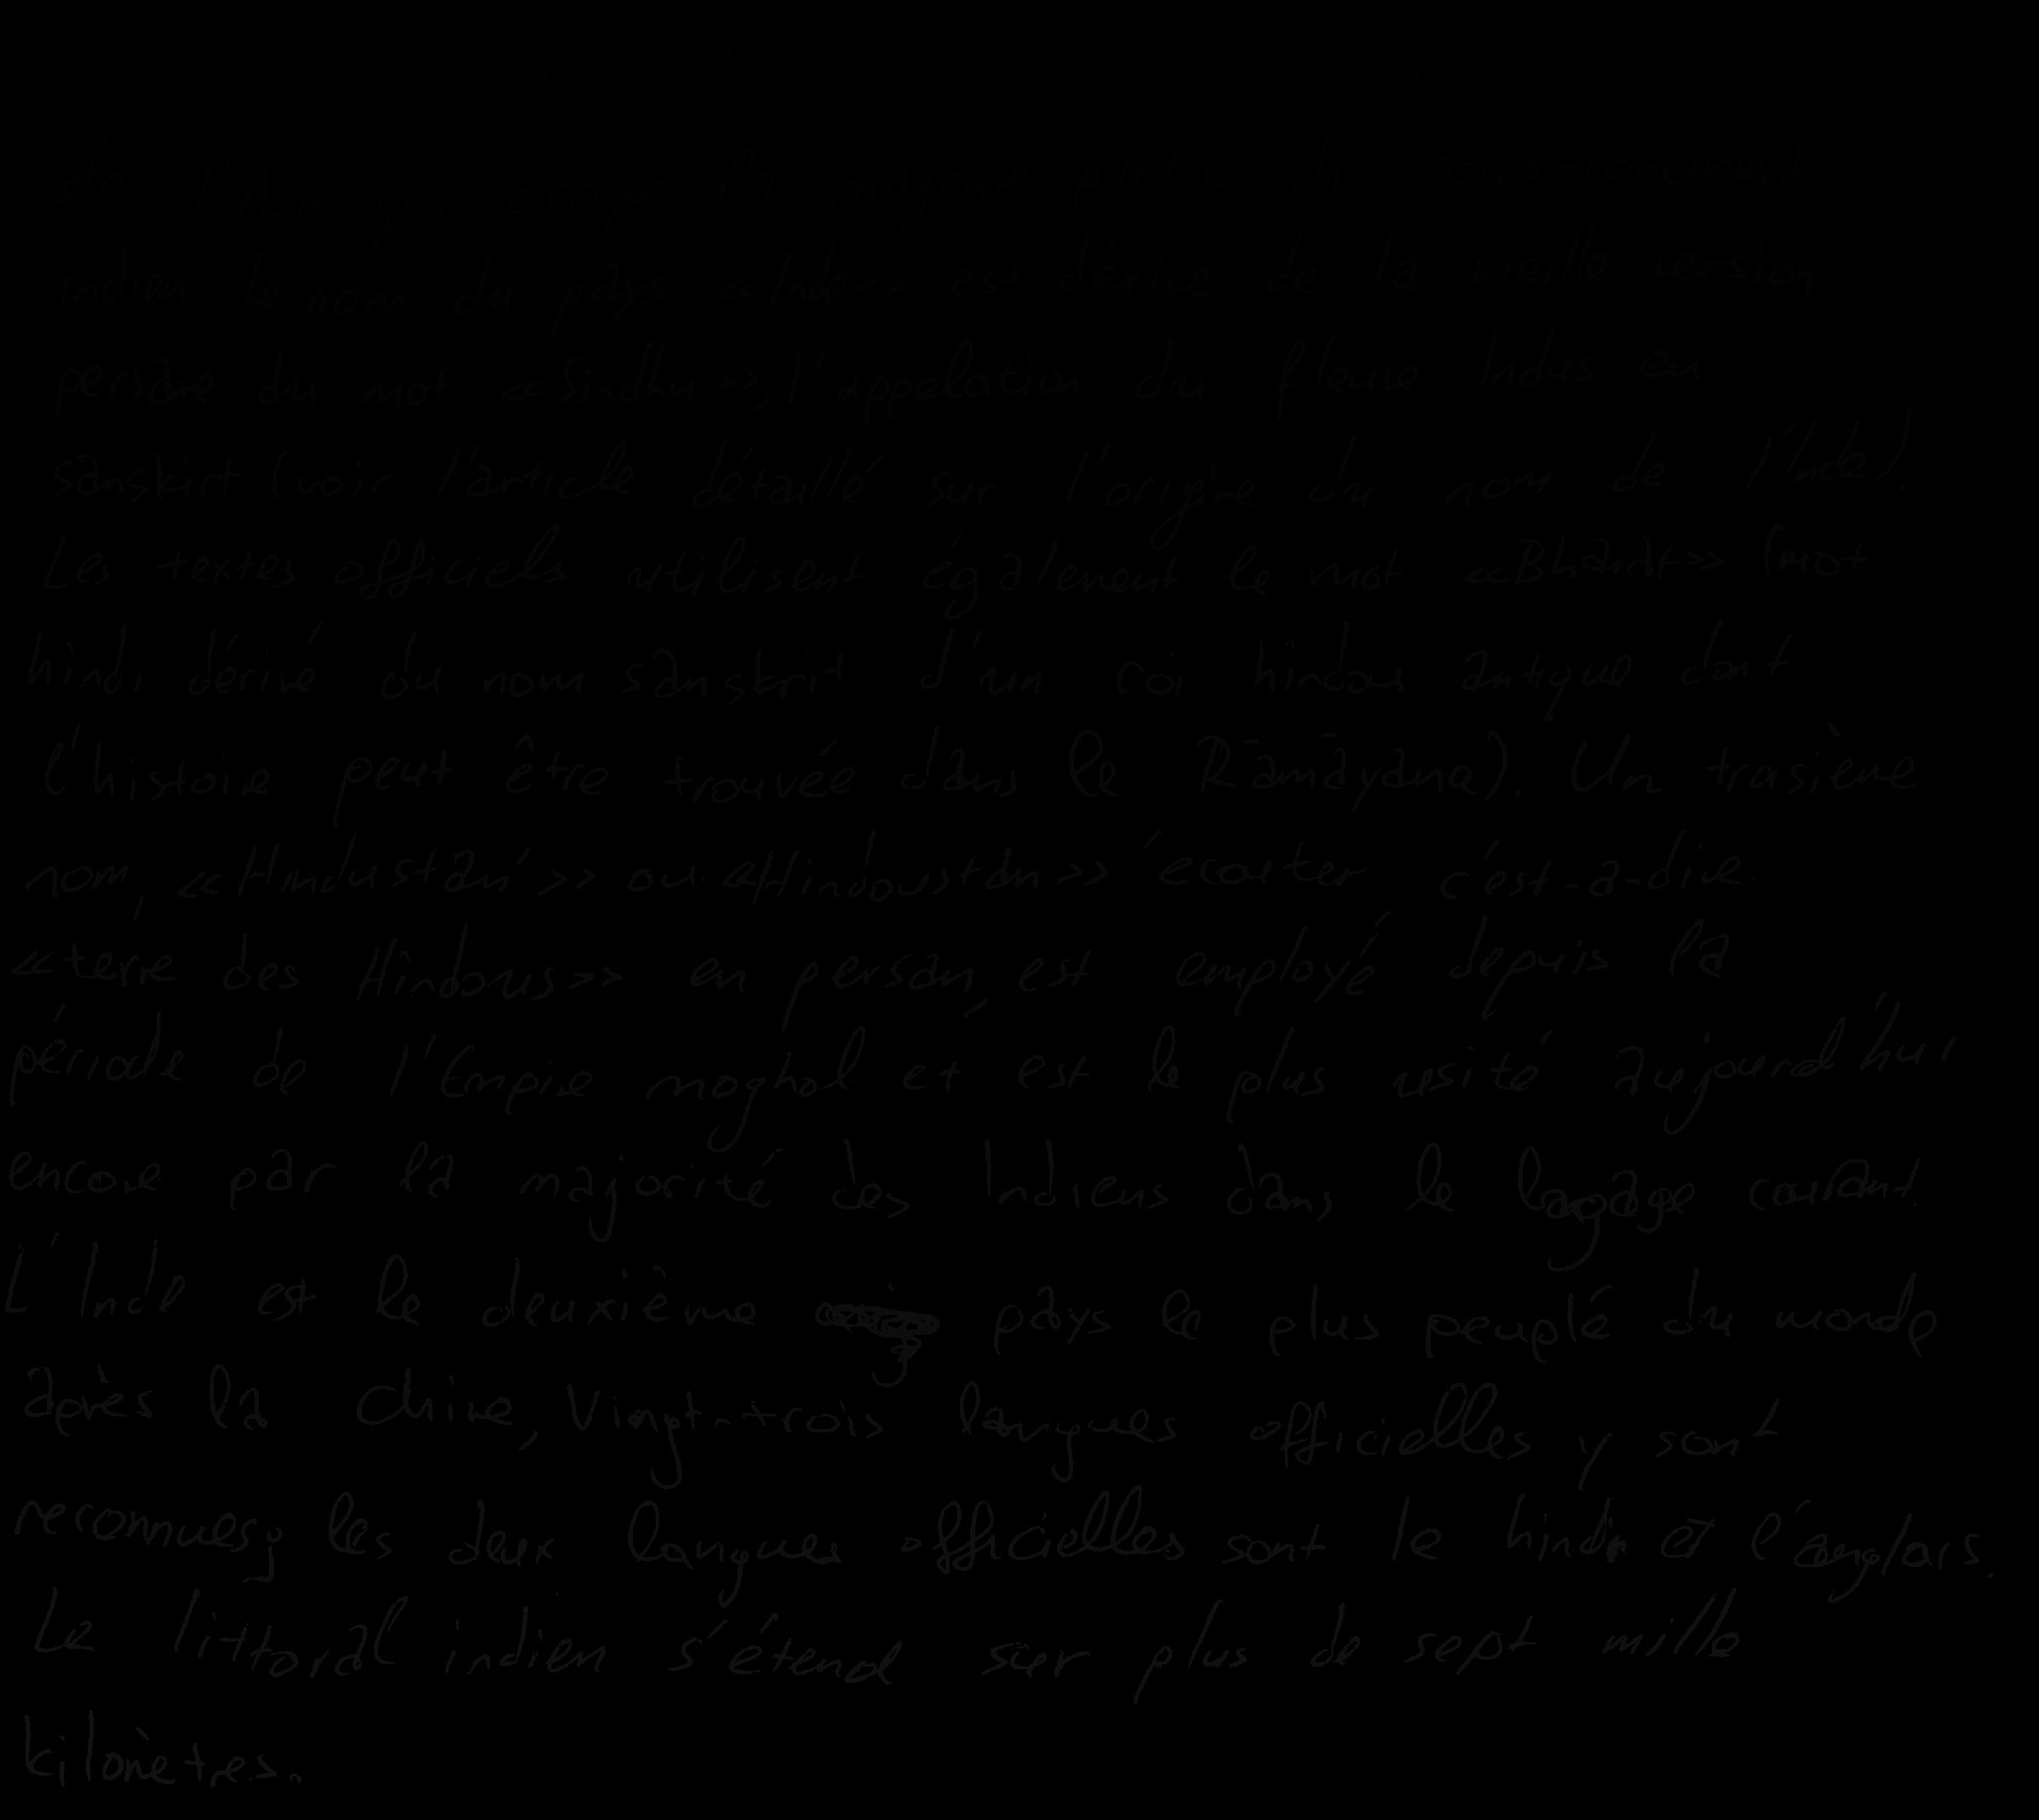 de l'Asie qui occupe la majeure partie du sous-continent
indien. Le nom du pays <<Inde>> est dérivé de la vieille version
persane du mot <<Sindhu>>, l'appelation du fleuve Indus en
sanskirt (voir l'article détaillé sur l'origine du nom de l'Inde).
Les textes officiels utilisent également le mot <<Bhārat>> (mot
hindi dérivé du nom sanskrit d'un roi hindou antique dont
l'histoire peut être trouvée dans le Rāmāyana). Un troisième
nom, <<Hindustan>> ou <<Hindoustan>> écouter c'est-a-dire
<<terre des Hindous>> en persan, est employé depuis la
période de l'Empire moghol et est le plus usité aujourd'hui
encore par la majorité des Indiens dans le langage courant.
L'Inde est le deuxième pays le plus peuplé du monde
après la Chine, Vingt-trois langues officielles y sont
reconnues; les deux langues officielles sont le hindi et l'anglais.
Le littoral indien s'étend sur plus de sept mille
kilomètres.